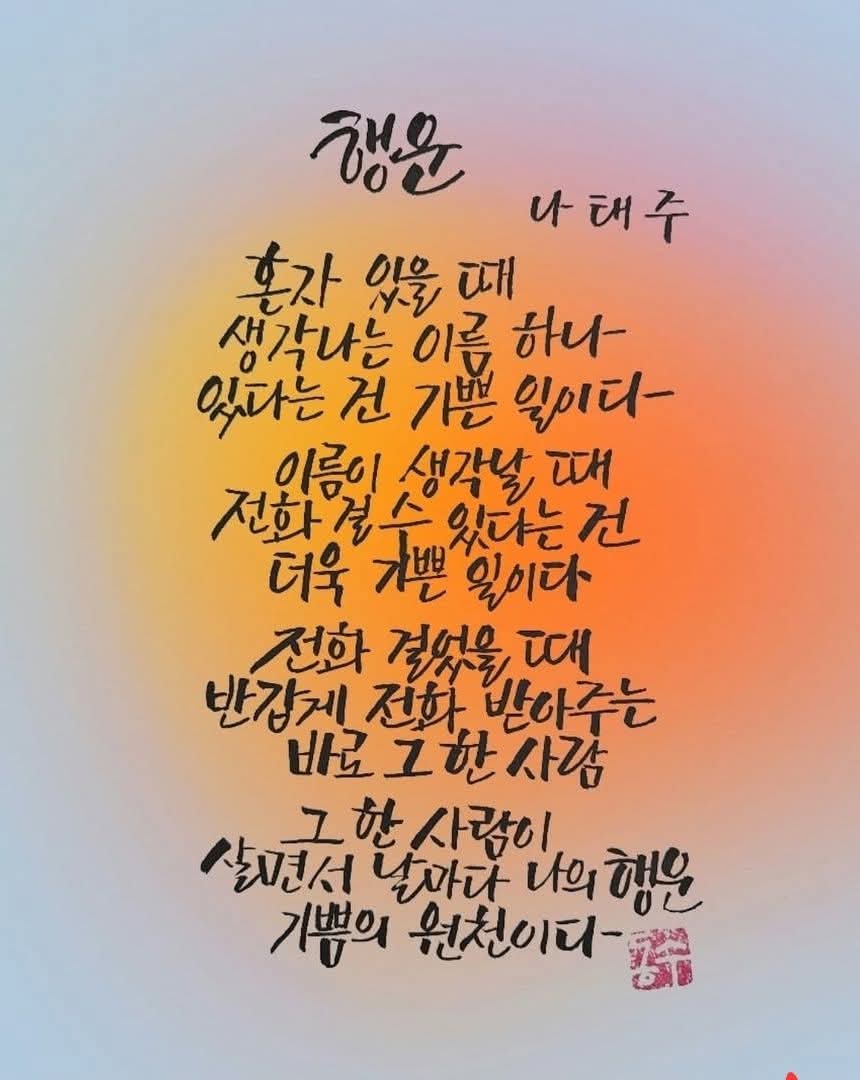 행운
나태주
혼자 있을 때
생각나는 이름 하나
있다는 건 기쁜 일이다
이름이 생각날 때
전화 걸 수 있다는 건
더욱 기쁜 일이다
전화 걸었을 때
반갑게 전화 받아주는
바로 그 한 사람
그 한 사람이
살면서 날마다 나의 행운
기쁨의 원천이다